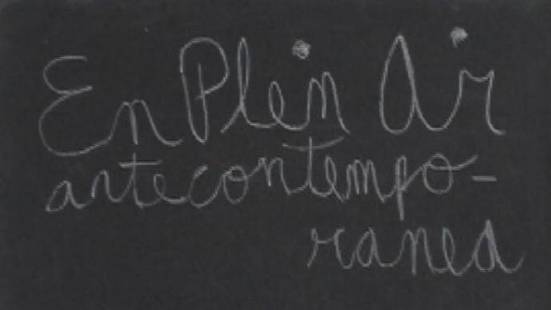 En Plein Air
artecontempo-
ranea